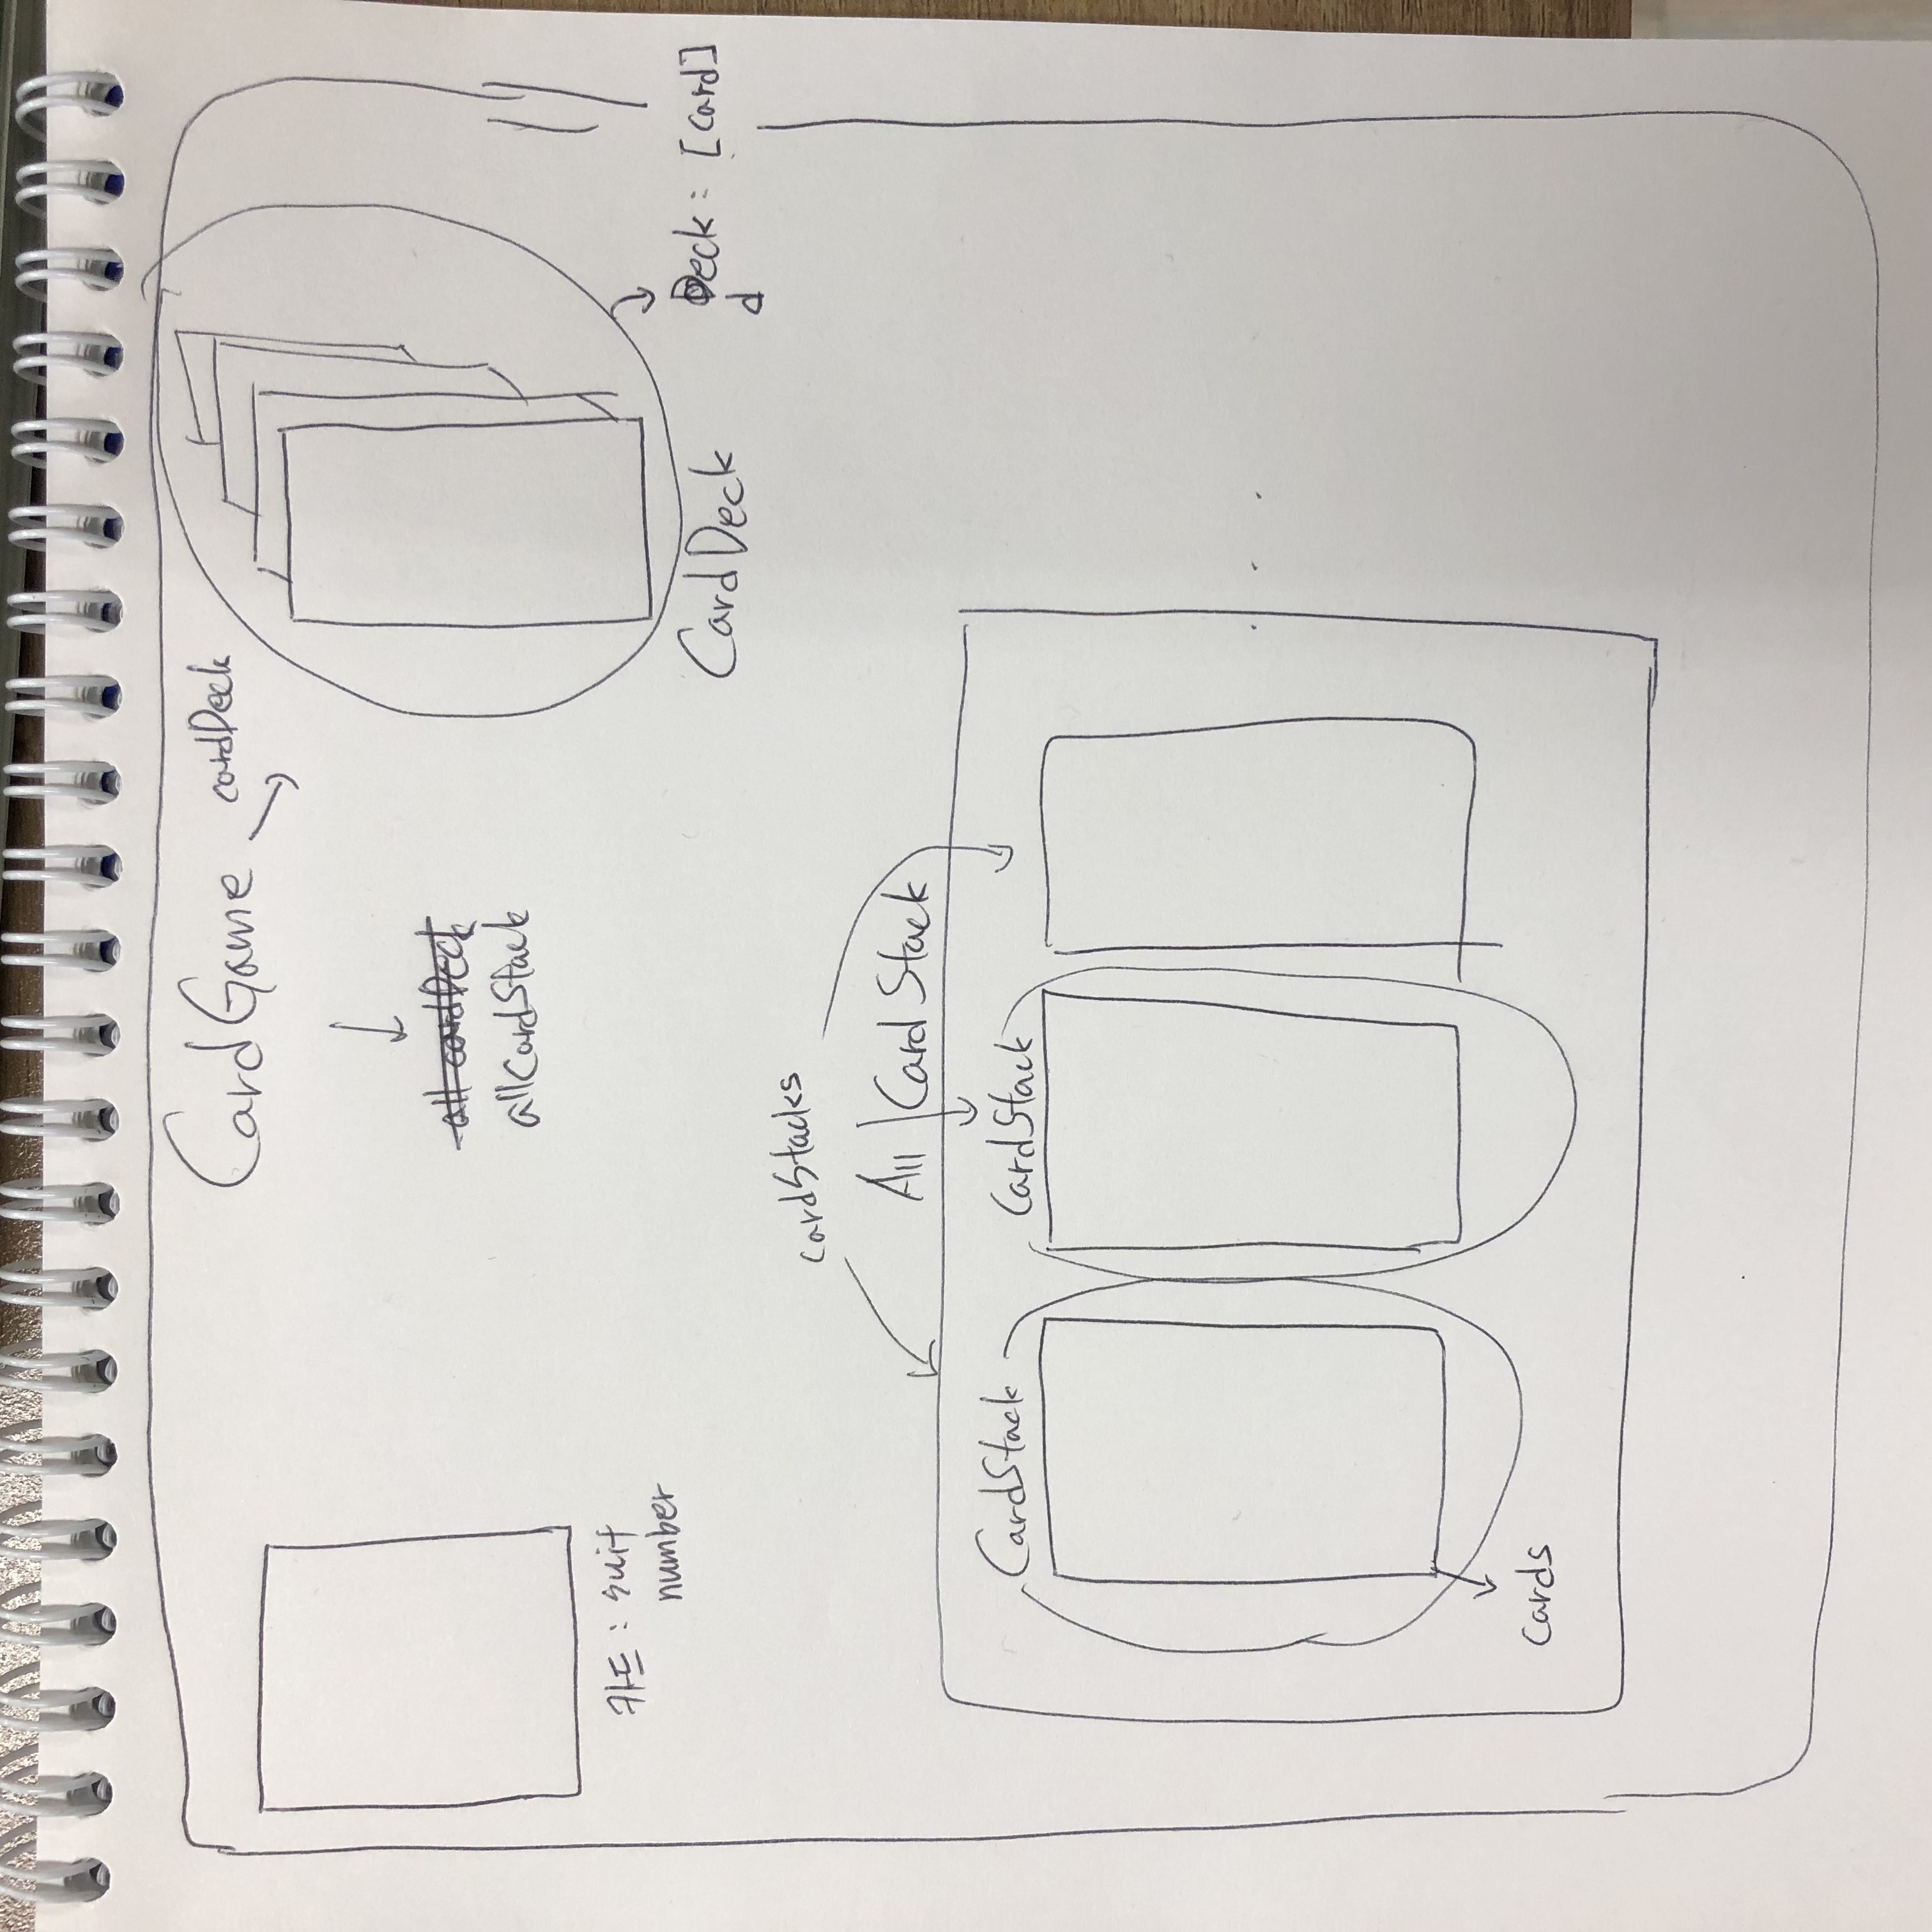 CardGame
cardDeck
all cardDeck
allCardStack
카드 : suit
number
CardDeck
Deck : [Card]
d
cardStacks
All CardStack
CardStack
CardStack
Cards